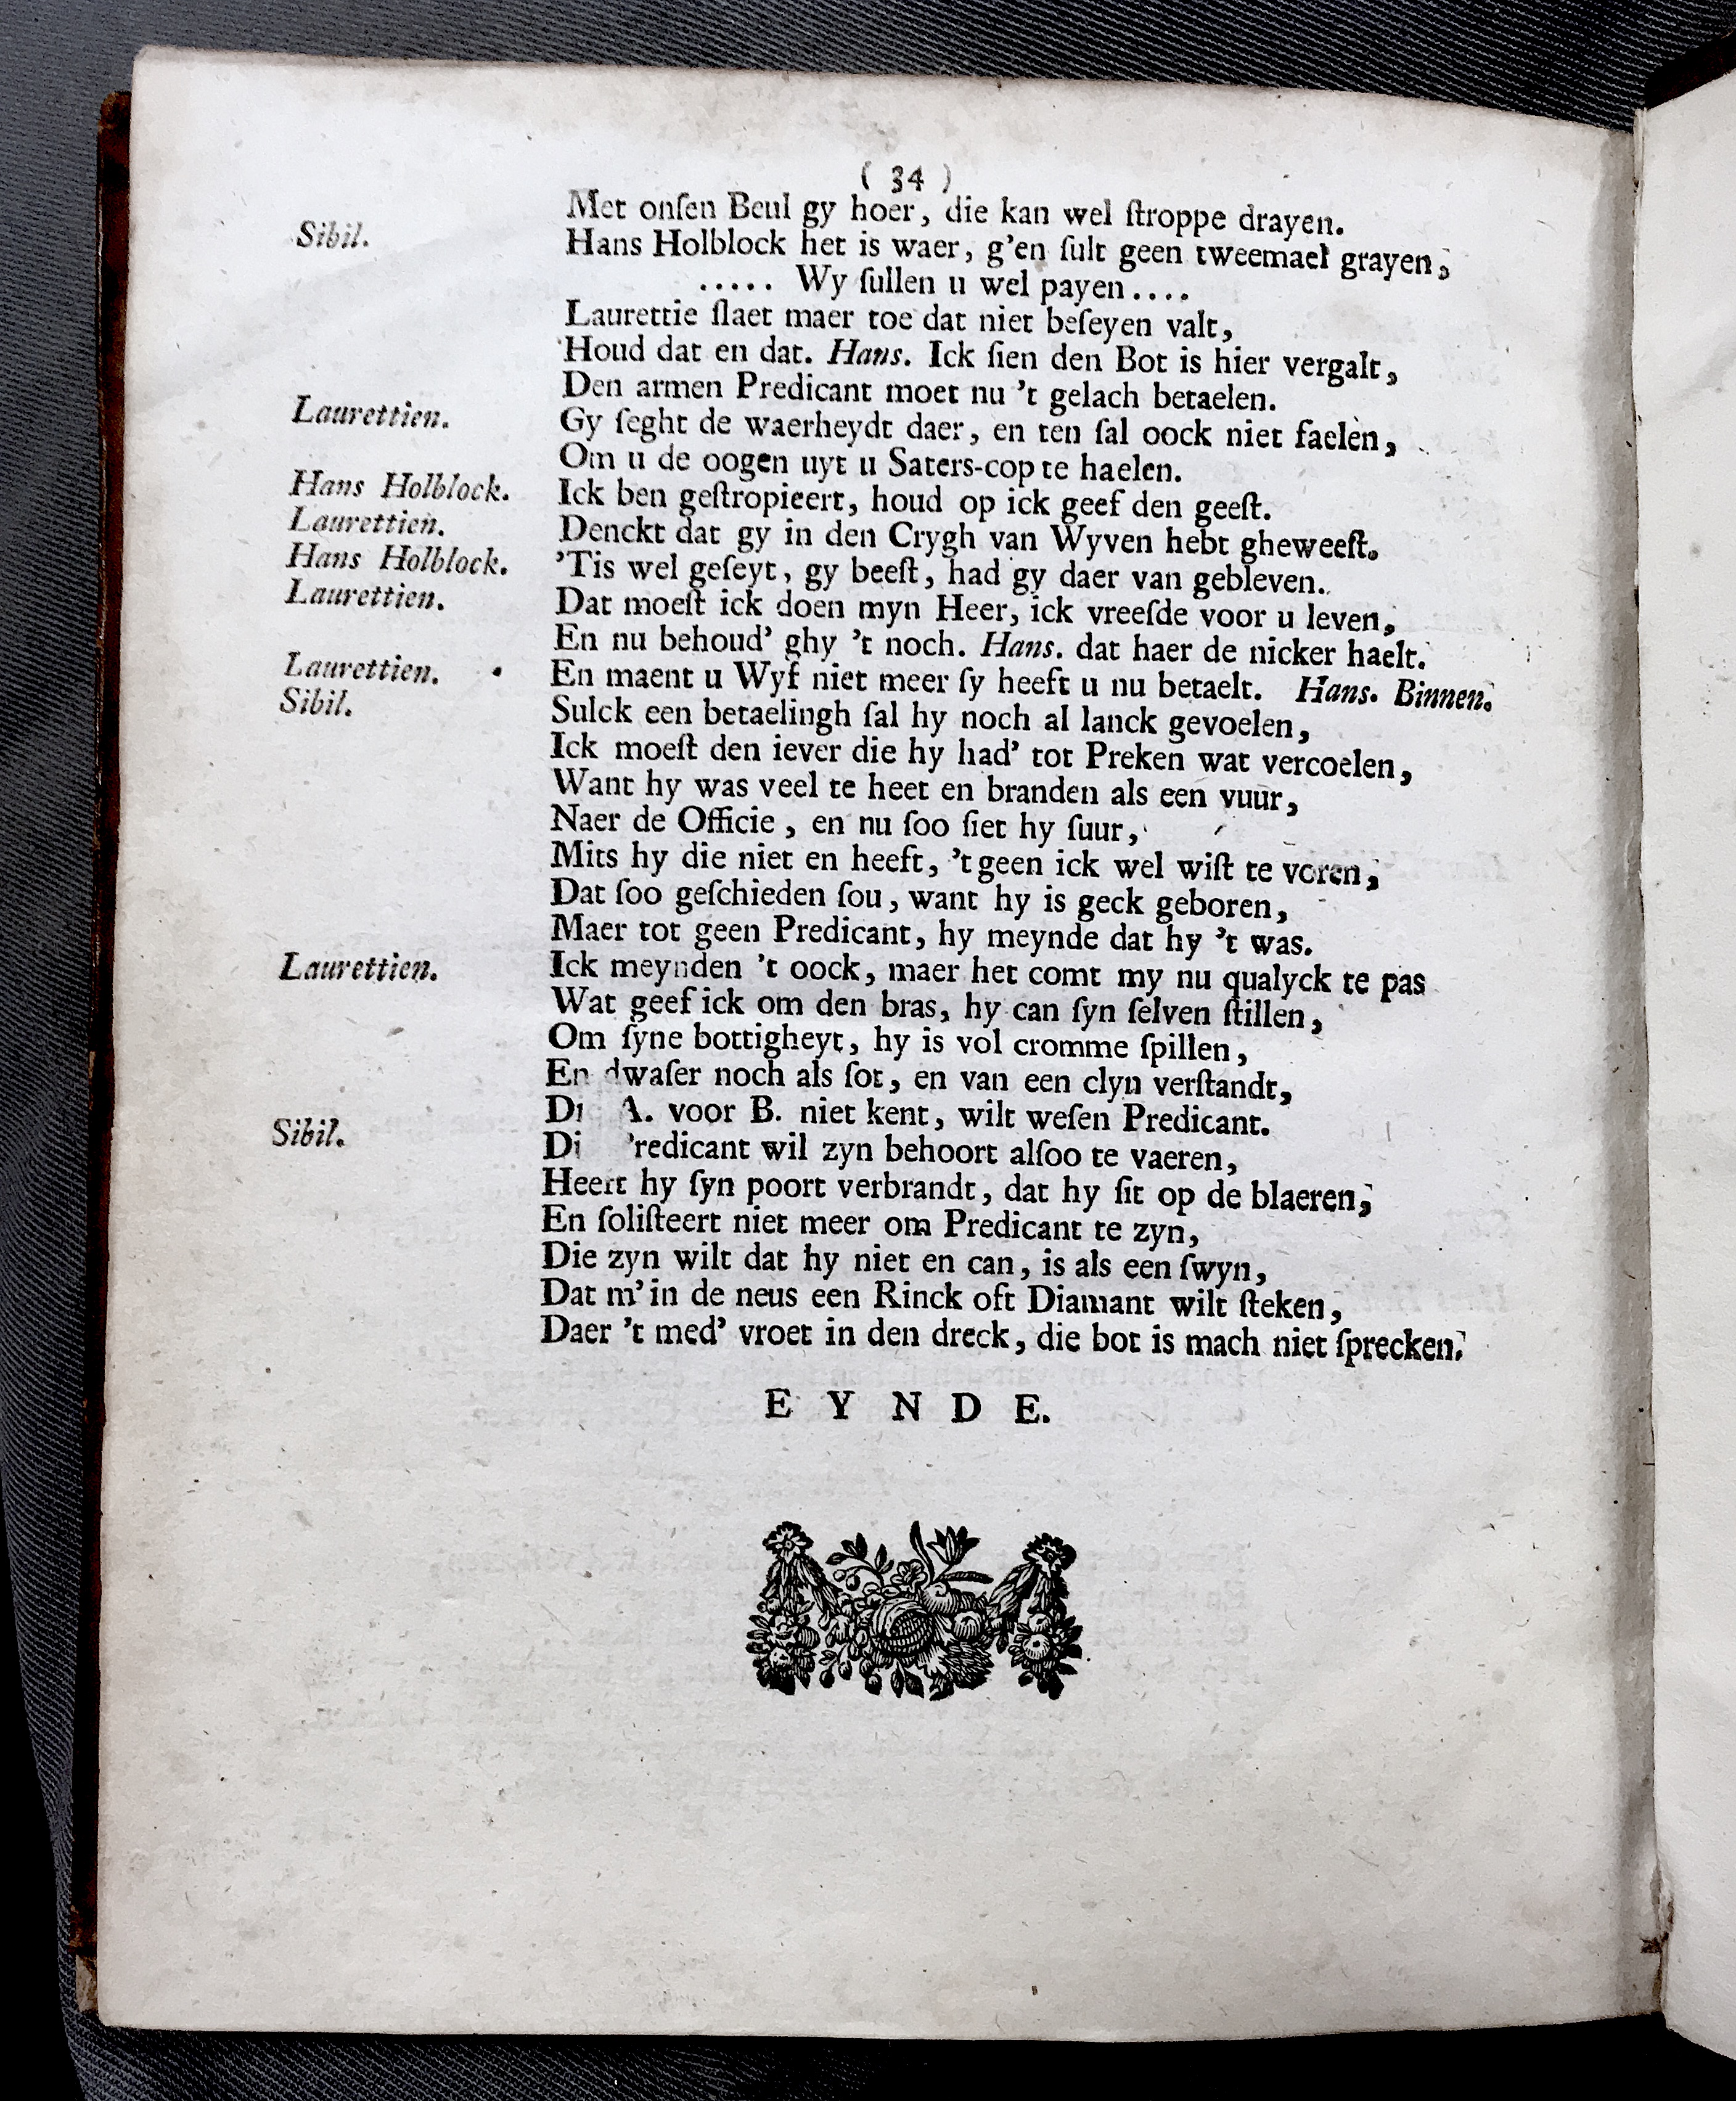 ( 34 )
Met onſen Beul gy hoer, die kan wel ſtroppe drayen.
Sibil. Hans Holblock het is waer, g'en ſult geen tweemael grayen,
..... Wy ſullen u wel payen....
Laurettie ſlaet maer toe dat niet beſeyen valt,
Houd dat en dat. Hans. Ick ſien den Bot is hier vergalt,
Den armen Predicant moet nu 't gelach betaelen.
Laurettien. Gy ſeght de waerheydt daer, en ten ſal oock niet faelen,
Om u de oogen uyt u Saters-cop te haelen.
Hans Holblock. Ick ben geſtropieert, houd op ick geef den geeſt.
Laurettien. Denckt dat gy in den Crygh van Wyven hebt gheweeſt.
Hans Holblock. 'Tis wel geſeyt, gy beeſt, had gy daer van gebleven.
Laurettien. Dat moeſt ick doen myn Heer, ick vreeſde voor u leven,
En nu behoud' ghy 't noch. Hans. dat haer de nicker haelt.
Laurettien. En maent u Wyf niet meer ſy heeft u nu betaelt. Hans. Binnen.
Sibil. Sulck een betaelingh ſal hy noch al lanck gevoelen,
Ick moeſt den iever die hy had' tot Preken wat vercoelen,
Want hy was veel te heet en branden als een vuur,
Naer de Officie, en nu ſoo ſiet hy ſuur,
Mits hy die niet en heeft, 't geen ick wel wiſt te voren,
Dat ſoo geſchieden ſou, want hy is geck geboren,
Maer tot geen Predicant, hy meynde dat hy 't was.
Laurettien. Ick meynden 't oock, maer het comt my nu qualyck te pas
Wat geef ick om den bras, hy can ſyn ſelven ſtillen,
Om ſyne bottigheyt, hy is vol cromme ſpillen,
En dwaſer noch als ſot, en van een clyn verſtandt,
A. voor B. niet kent, wilt weſen Predicant.
Sibil. Predicant wil zyn behoort alſoo te vaeren,
Heeft hy ſyn poort verbrandt, dat hy ſit op de blaeren,
En ſoliſteert niet meer om Predicant te zyn,
Die zyn wilt dat hy niet en can, is als een ſwyn,
Dat m'in de neus een Rinck oft Diamant wilt ſteken,
Daer 't med' vroet in den dreck, die bot is mach niet ſprecken.
EYNDE.